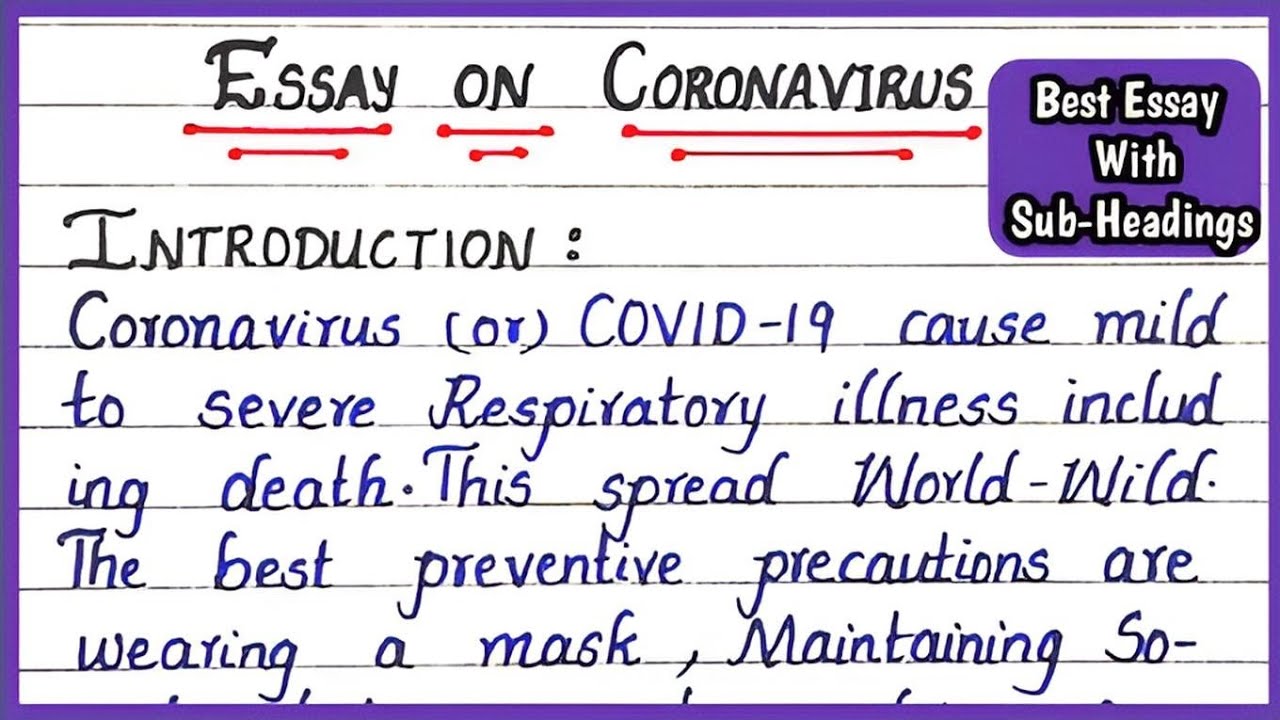 ESSAY ON CORONAVIRUS
Best Essay
With
Sub-Headings
INTRODUCTION :
Coronavirus (or) COVID-19 cause mild
to severe Respiratory illness includ
ing death. This spread World-Wild.
The best preventive precautions are
wearing a mask, Maintaining So-